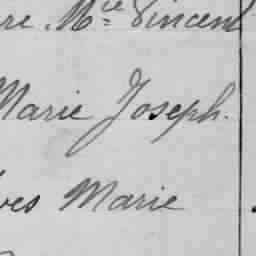 re. Mcie Vincent
Marie Joseph.
ves Marie